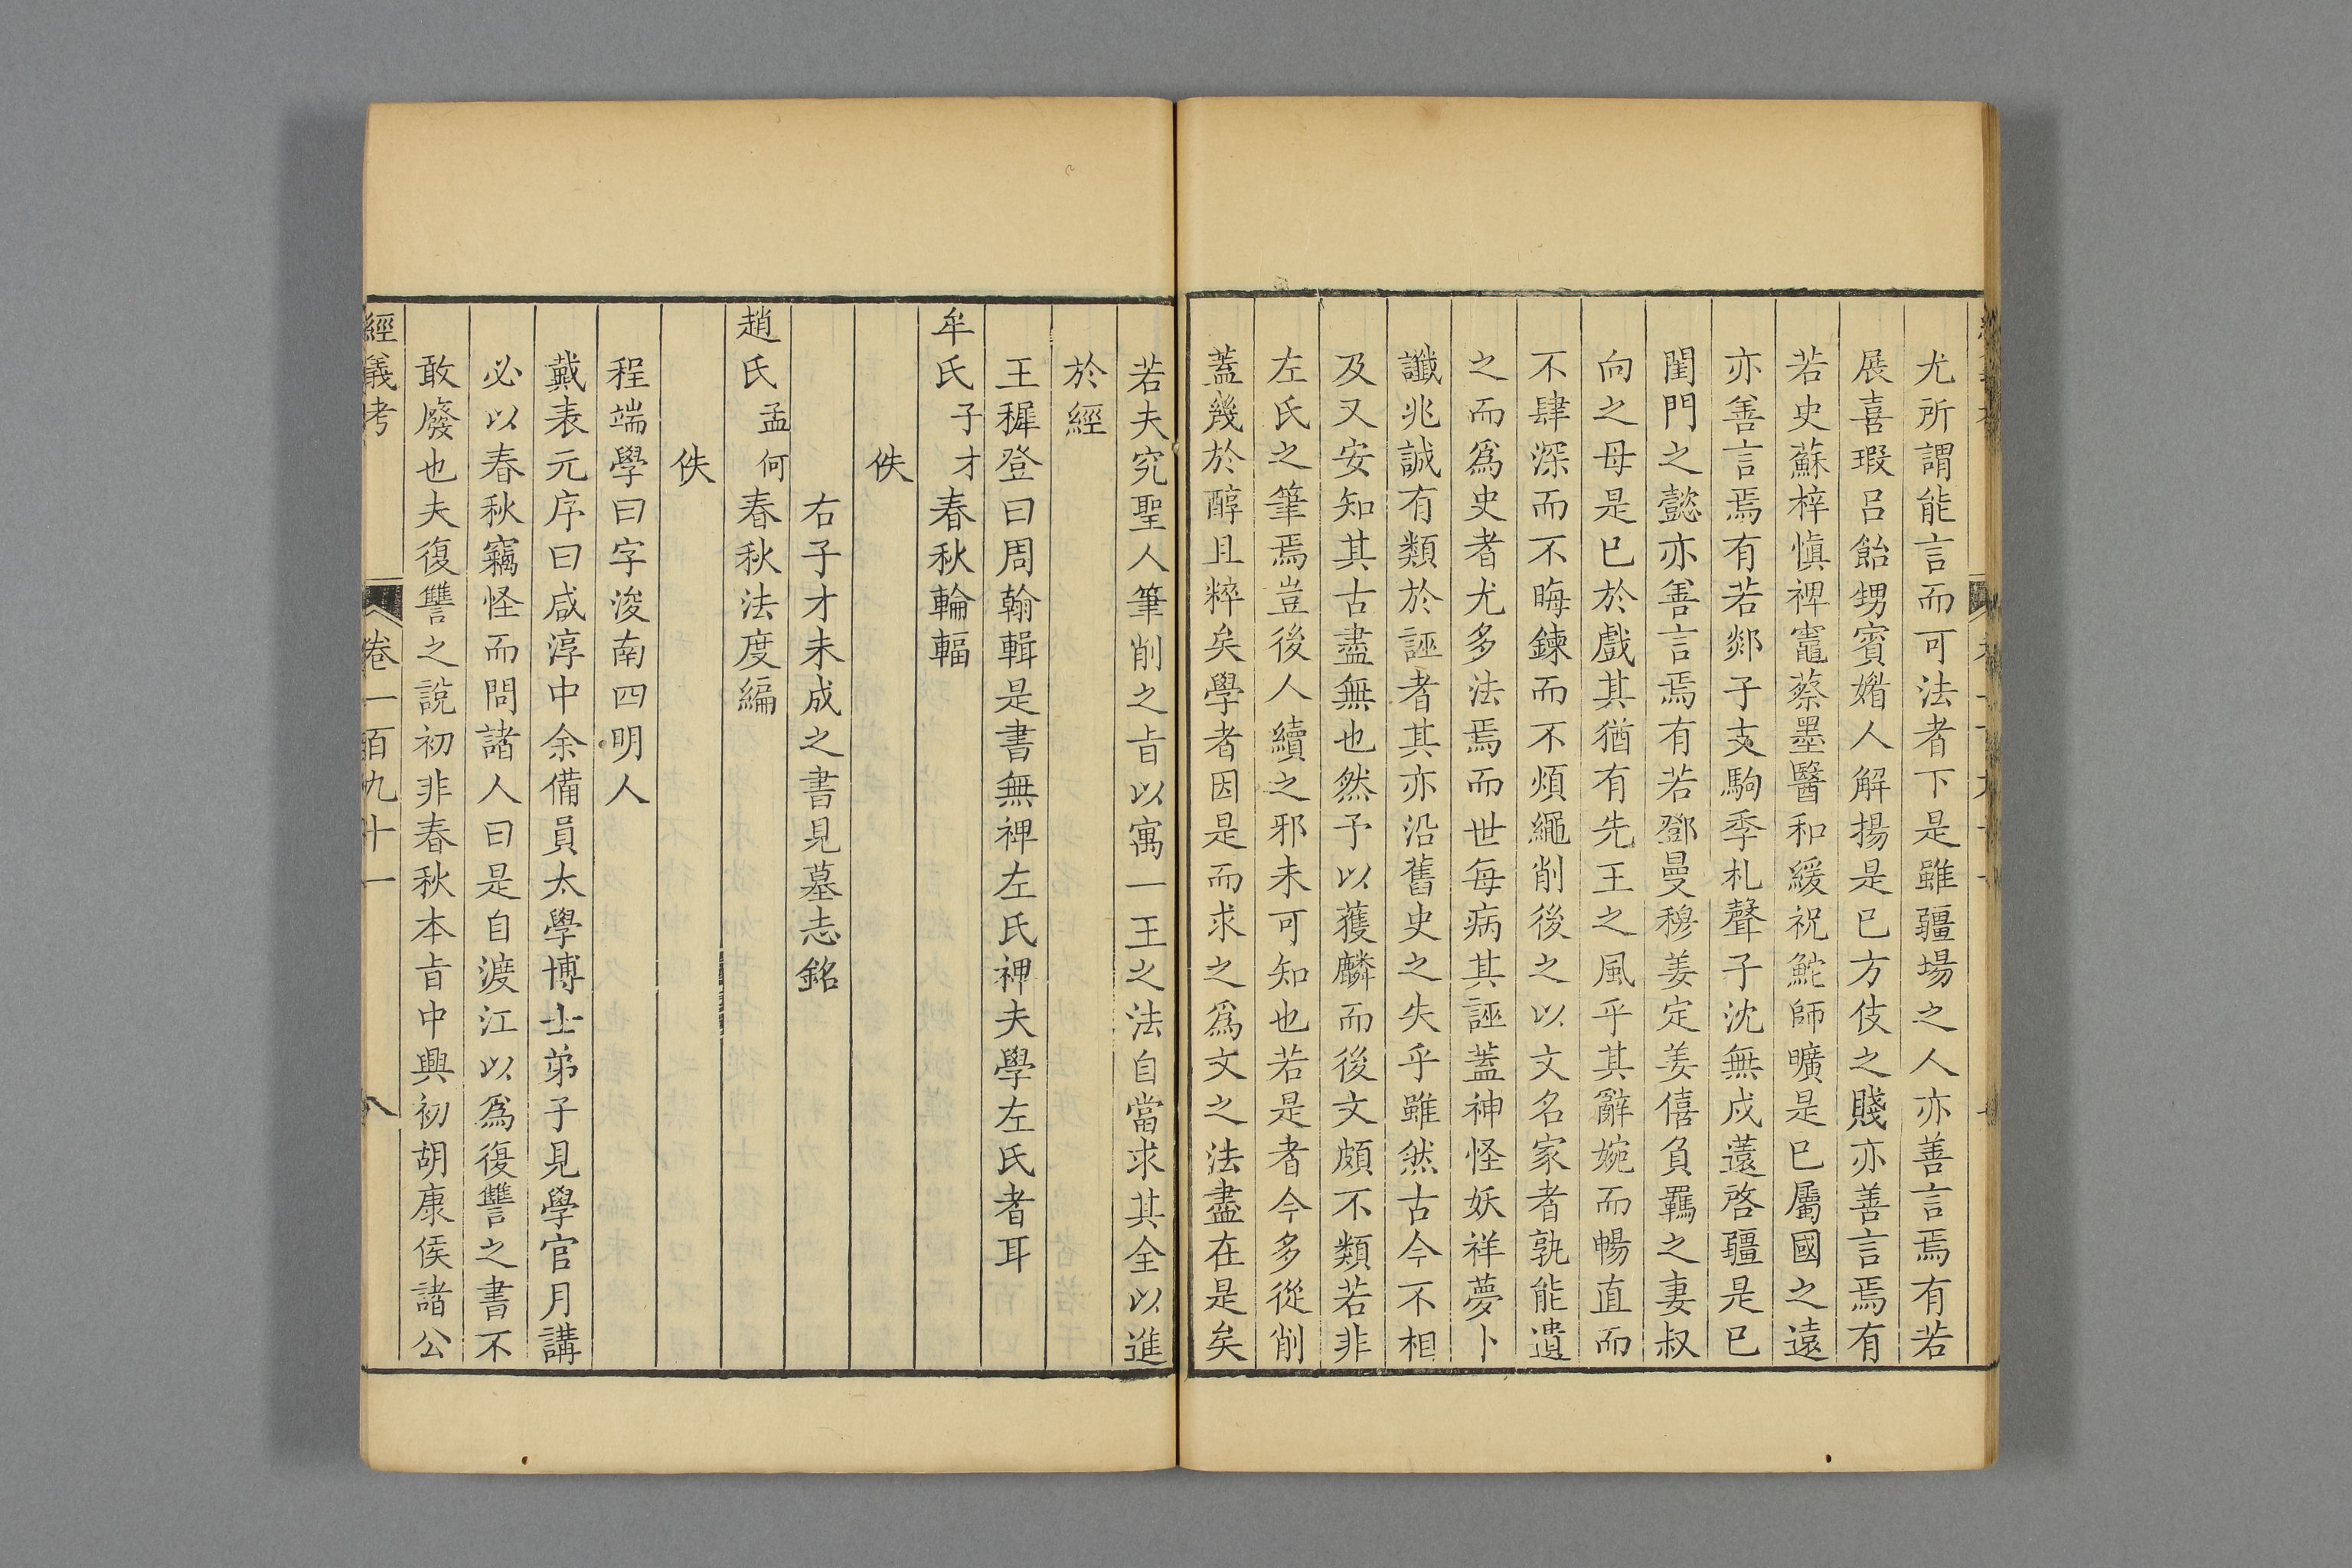 尤所謂能言而可法者下是雖疆場之人亦善言焉有若
展喜瑕呂飴甥賓媢人解揚是已方伎之賤亦善言焉有
若史蘇梓慎裨竈蔡墨醫和緩祝鮀師曠是已屬國之遠
亦善言焉有若郯子支駒季札聲子沈無戍薳啓疆是已
閨門之懿亦善言焉有若鄧曼穆姜定姜僖負羈之妻叔
向之母是已於戲其猶有先王之風乎其辭婉而暢直而
不肆深而不晦鍊而不煩繩削後之以文名家者孰能遺
之而爲史者尤多法焉而世每病其誣蓋神怪妖祥夢卜
讖兆誠有類於誣者其亦沿舊史之失乎雖然古今不相
及又安知其古盡無也然予以獲麟而後文頗不類若非
左氏之筆焉豈後人續之邪未可知也若是者今多從削
蓋幾於醇且粹矣學者因是而求之爲文之法盡在是矣
若夫究聖人筆削之旨以寓一王之法自當求其全以進
於經
王穉登曰周翰輯是書無裨左氏裨夫學左氏者耳
牟氏子才春秋輪輻
佚
右子才未成之書見墓志銘
趙氏孟何春秋法度編
佚
程端學曰字浚南四明人
戴表元序曰咸淳中余備員太學博士弟子見學官月講
必以春秋竊怪而問諸人曰是自渡江以爲復讐之書不
敢廢也夫復讐之說初非春秋本旨中興初胡康侯諸公
經義考 卷一百九十一 八